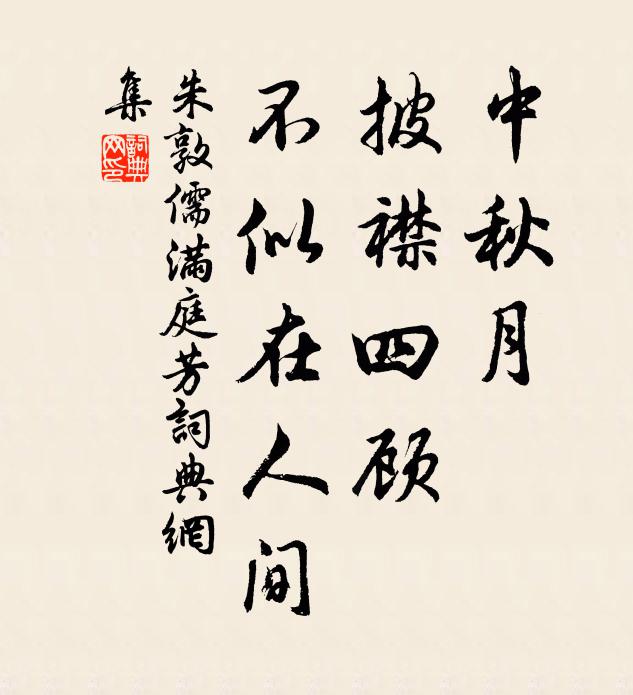 中秋月
披襟四顾
不似在人间
朱敦儒满庭芳詞典網
集
詞典网印